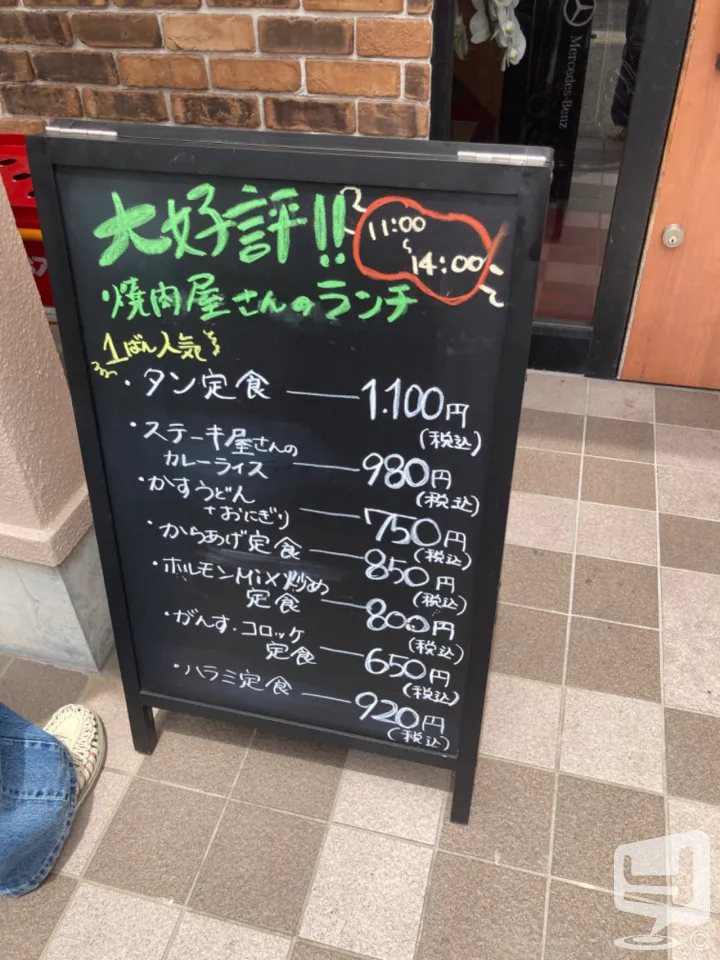 Mercedes-Benz
大好評!!
11:00
〜
14:00
焼肉屋さんのランチ
1ばん人気
・タン定食 — 1.100円
(税込)
・ステーキ屋さんの
カレーライス — 980円
(税込)
・かすうどん
+おにぎり — 750円
(税込)
・からあげ定食 — 850円
(税込)
・ホルモンMiX炒め
定食 — 800円
(税込)
・がんす・コロッケ
定食 — 650円
(税込)
・ハラミ定食 — 920円
(税込)